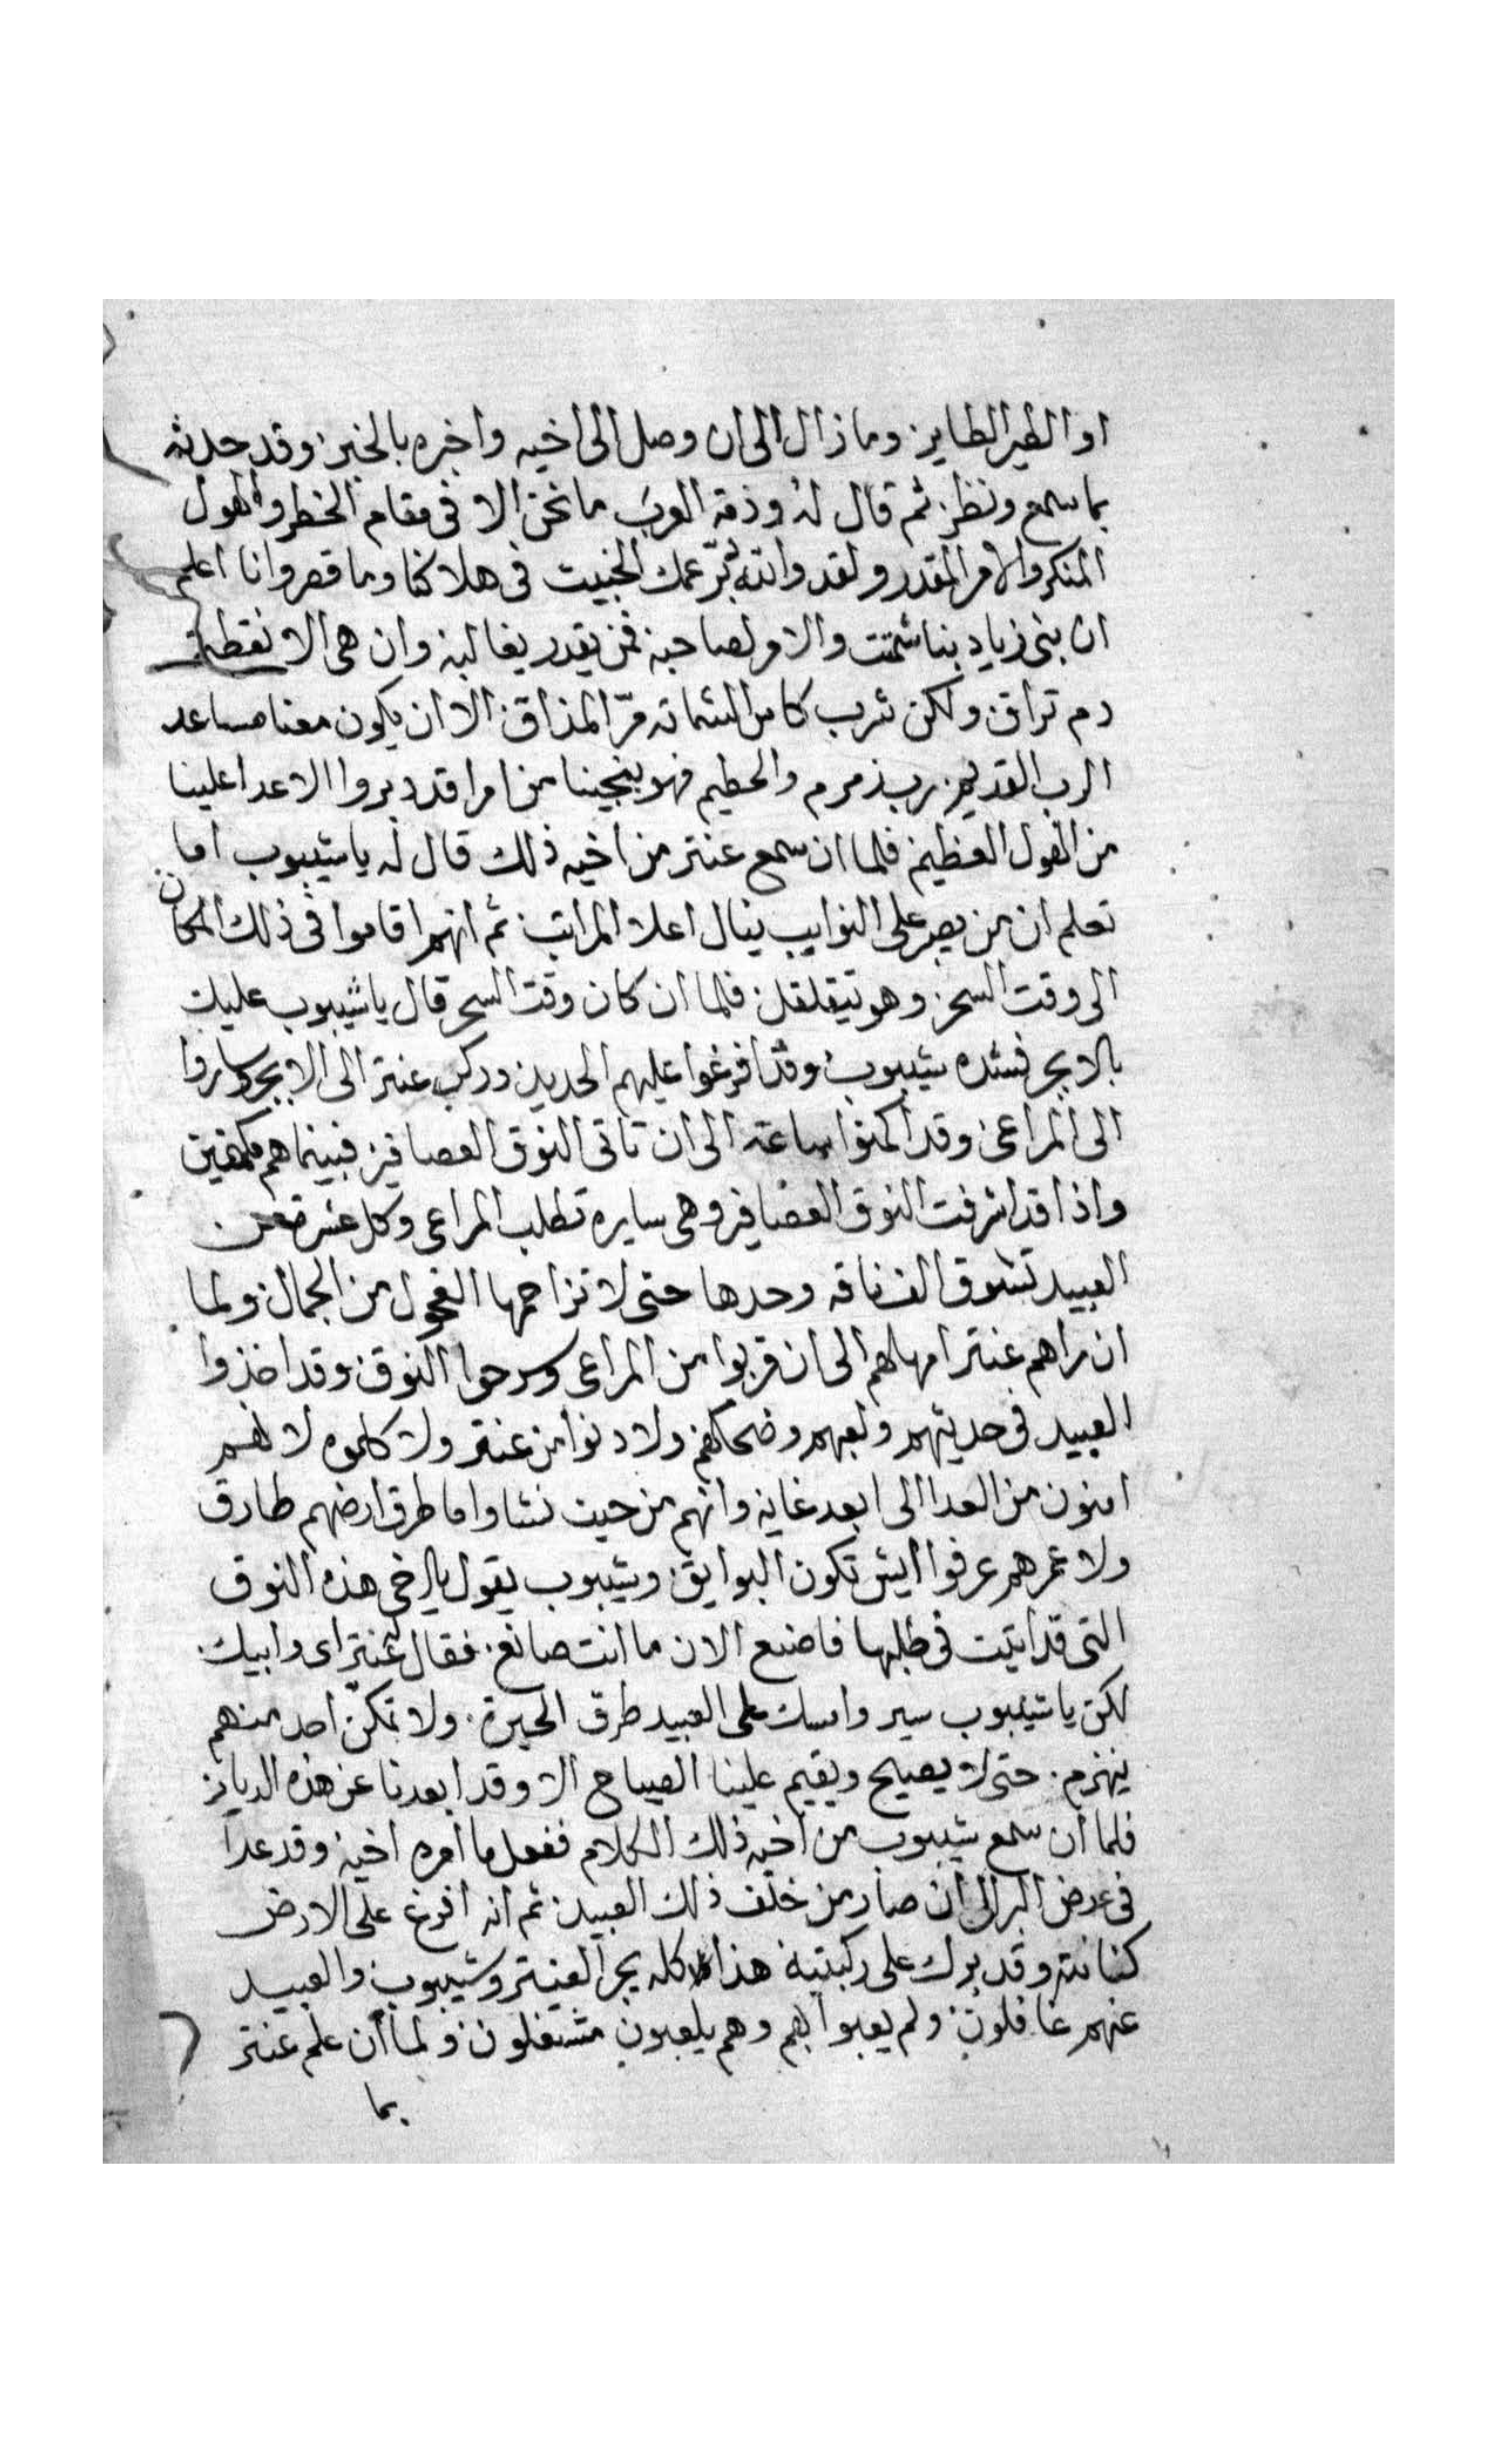 او الطير الطاير وما زال الى ان وصل الى اخيه واخبره بالخبر وقد حدثه
بما سمع ونظر ثم قال له وذمة العرب ما نحن الا فى مقام الخطر والهول
المنكر والامر المقدر ولقد والله دبر عمك الخبيث فى هلاكنا وما قصر وانا اعلم
ان بنى زياد بنا شمتت والامر لصاحبه فمن يقدر يغالبه وان هى الا نقطة
دم تراق ولكن شرب كاس الشماته مرّ المذاق الا ان يكون معنا مساعد
الرب القديم رب زمزم والحطيم فهو ينجينا من امرا قد دبروا الاعدا علينا
من الهول العظيم فلما ان سمع عنتر من اخيه ذلك قال له يا شيبوب اما
تعلم ان من يصبر على النوايب ينال اعلا المراتب ثم انهم اقاموا فى ذلك المكان
الى وقت السحر وهو يتقلقل فلما ان كان وقت السحر قال يا شيبوب عليك
بالابجر فشده شيبوب وقد افرغوا عليهم الحديد وركب عنتر الى الابجر وساروا
الى المراعى وقد اكمنوا ساعة الى ان تاتى النوق العصافير فبينما هم مكمنين
واذا قد اشرفت النوق العصافير وهى سايره تطلب المراعى وكل عشرة من
العبيد تسوق الف ناقه وحدها حتى لا تزاحمها الفحول من الجمال ولما
ان راهم عنتر امهلهم الى ان قربوا من المراعى وسرحوا النوق وقد اخذوا
العبيد فى حديثهم ولعبهم وضحكهم ولا دنوا من عنتر ولا كلموه لانهم
امنون من العدا الى ابعد غايه وانهم من حيث نشاوا ما طرق ارضهم طارق
ولا عمرهم عرفوا ايش تكون البوايق وشيبوب يقول يا اخى هذه النوق
التى قد اتيت فى طلبها فاصنع الان ما انت صانع فقال عنتر اى وابيك
لكن يا شيبوب سير وامسك على العبيد طرق الحيرة ولا تمكن احد منهم
ينهزم حتى لا يصيح ويقيم علينا الصياح الا وقد ابعدنا عن هذه الديار
فلما ان سمع شيبوب من اخيه ذلك الكلام ففعل ما امره اخيه وقد عدا
فى عرض البر الى ان صار من خلف ذلك العبيد ثم انه افرغ على الارض
كنانته وقد برك على ركبتيه هذا كله يجرا لعنتر وشيبوب والعبيد
عنهم غافلون ولم يعبوا بهم وهم يلعبون مشتغلون ولما ان علم عنتر
بما